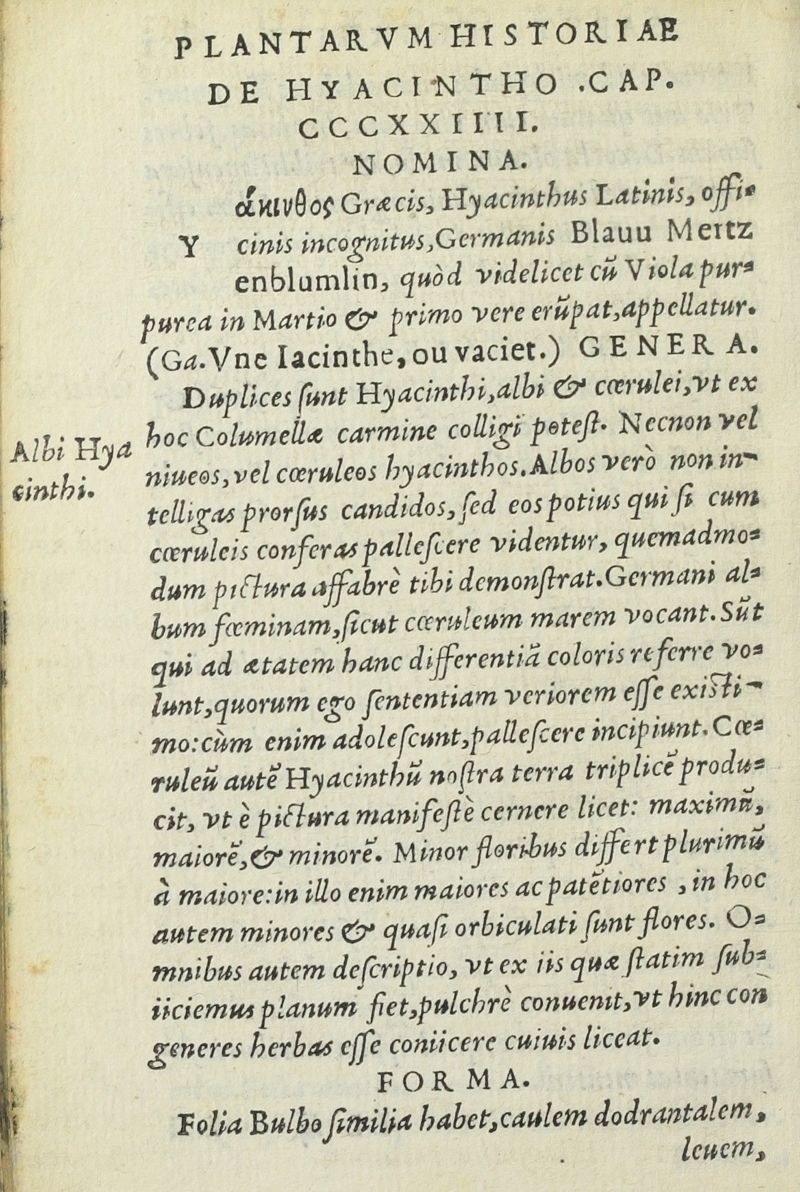 PLANTARVM HISTORIAE
DE HYACINTHO .CAP.
CCCXXIIII.
NOMINA.
άκινθος Græcis, Hyacinthus Latinis, offi-
Y cinis incognitus, Germanis Blauu Mertz
enblumlin, quòd videlicet cũ Viola pur-
purea in Martio & primo vere erũpat, appellatur.
(Ga. Vne Iacinthe, ou vaciet.) GENERA.
Duplices ſunt Hyacinthi, albi & cœrulei, vt ex
hoc Columellæ carmine colligi poteſt. Necnon vel
niueos, vel cœruleos hyacinthos. Albos verò non in-
Albi Hya
cinthi.
telligas prorſus candidos, ſed eos potius qui ſi cum
cœruleis conferas palleſcere videntur, quemadmo-
dum pictura affabrè tibi demonſtrat. Germani al-
bum fœminam, ſicut cœruleum marem vocant. Sũt
qui ad ætatem hanc differentiã coloris referre vo-
lunt, quorum ego ſententiam veriorem eſſe exiſti-
mo: cùm enim adoleſcunt, palleſcere incipiunt. Cœ-
ruleũ autẽ Hyacinthũ noſtra terra triplicẽ produ-
cit, vt è pictura manifeſtè cernere licet: maximũ,
maiorẽ, & minorẽ. Minor floribus differt plurimũ
à maiore: in illo enim maiores ac patẽtiores, in hoc
autem minores & quaſi orbiculati ſunt flores. O-
mnibus autem deſcriptio, vt ex iis quæ ſtatim ſub-
iiciemus planum fiet, pulchrè conuenit, vt hinc con
generes herbas eſſe coniicere cuiuis liceat.
FORMA.
Folia Bulbo ſimilia habet, caulem dodrantalem,
leuem,